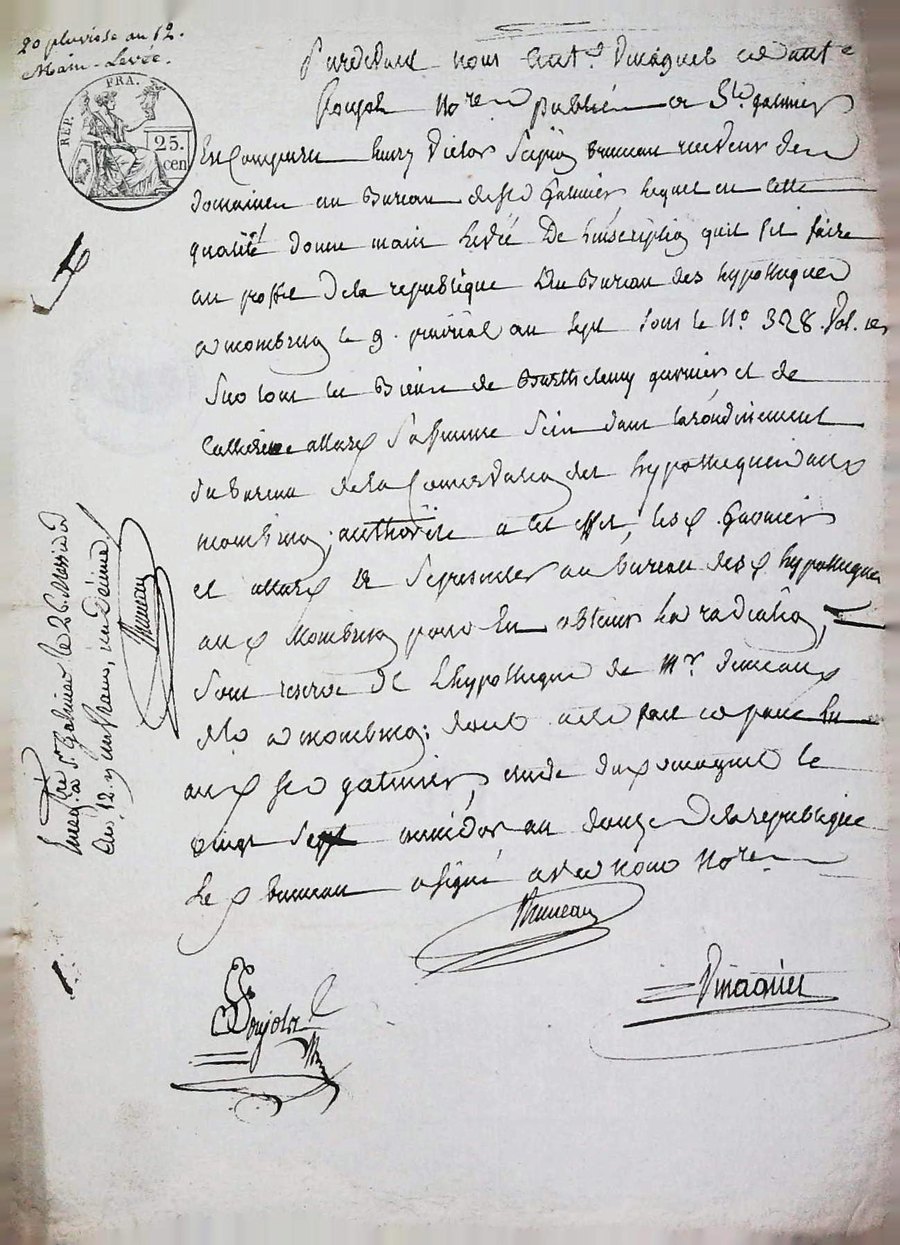 20 pluviose an 12.
Main-Levée.
REP. FRA.
25.
cen
Pardevant nous et
Poujol No.re publics a St. galmier
En Comparu henry Victor Scipion Bruneau receveur des
domaines au Bureau de St Galmier lequel en cette
qualité donne main levée De linscription quil fit faire
au proffit De la republique au Bureau des hypotheques
a monbrison le 9. prairial an sept sous le N.o 328. Vol.
Sur tous les Biens de Barthelemy garnier et de
Catherine allard Sa femme Scis dans larondissement
du bureau de la Conservation des hypotheques
monbrison; authorise a cet effet, les Garnier
et allard de se presenter au bureau des hypotheques
monbrison pour En obtenir La radiation,
Sous reserve de Lhypotheque de Mr.
a monbrison; dont acte fait
St galmier, etude du le
vingt Sept an douze De la republique
Le Bruneau a signé avec nous No.re
Bruneau
Poujol
Enregtré a St. Galmier le 26 Messidor
an 12. un franc, un Décime.
Bruneau